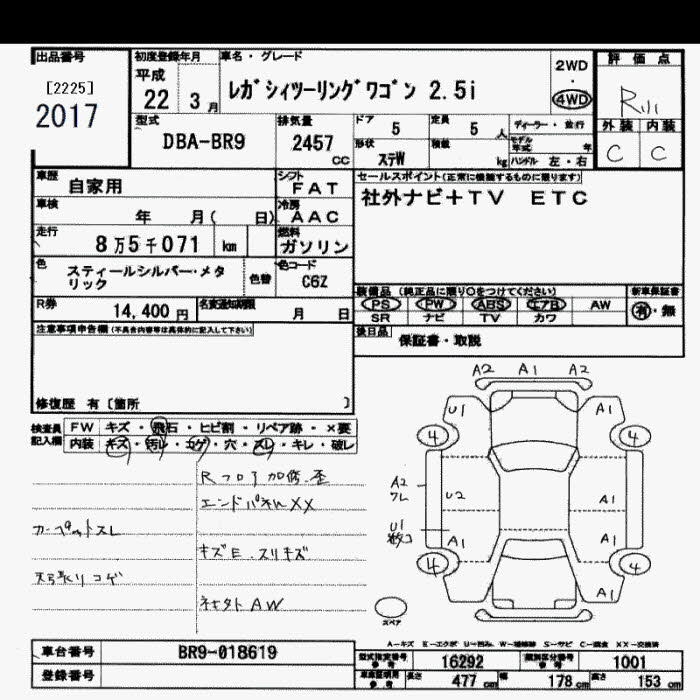 出品番号
[2225]
2017
初度登録年月
平成
22 3月
車名・グレード
レガシィツーリングワゴン 2.5i
2WD
・
4WD
評価点
R
外装 内装
C C
型式
DBA-BR9
排気量
2457
cc
ドア
5
定員
5 人
ディーラー・並行
形状
ステW
積載
kg
モデル年式 年
ハンドル 左・右
車歴
自家用
シフト
FAT
セールスポイント(正常に機能するものに限ります)
社外ナビ+TV ETC
車検
年 月( 日)
冷房
AAC
走行
8万5千071 km
燃料
ガソリン
色
スティールシルバー・メタリック
色替
色コード
C6Z
装備品 (純正品に限り○をつけてください)
PS PW ABS エアB AW
SR ナビ TV カワ
新車保証書
有・無
R券
14,400 円
名変通知期限
月 日
後日品
保証書・取説
注意事項申告欄(不具合内容等は具体的に記入して下さい)
修復歴 有〔箇所 〕
検査員
記入欄
FW キズ・飛石・ヒビ割・リペア跡・×要
内装 キズ・汚レ・コゲ・穴・スレ・キレ・破レ
カーペットスレ
天張りコゲ
Rフロア加修・歪
エンドパネルXX
キズE.スリキズ
社外AW
A2 A1 A2
U1 A1
4 4
A2
U2 A1
U1
A1 A1
4 4
A1
スペア
A-キズ E-エクボ U-凹み W-補修跡 S-サビ C-腐食 XX-交換済
車台番号
BR9-018619
登録番号
型式指定番号
参考
16292
類別区分番号
参考
1001
車庫証明用
参考
長さ
477 cm
幅
178 cm
高さ
153 cm